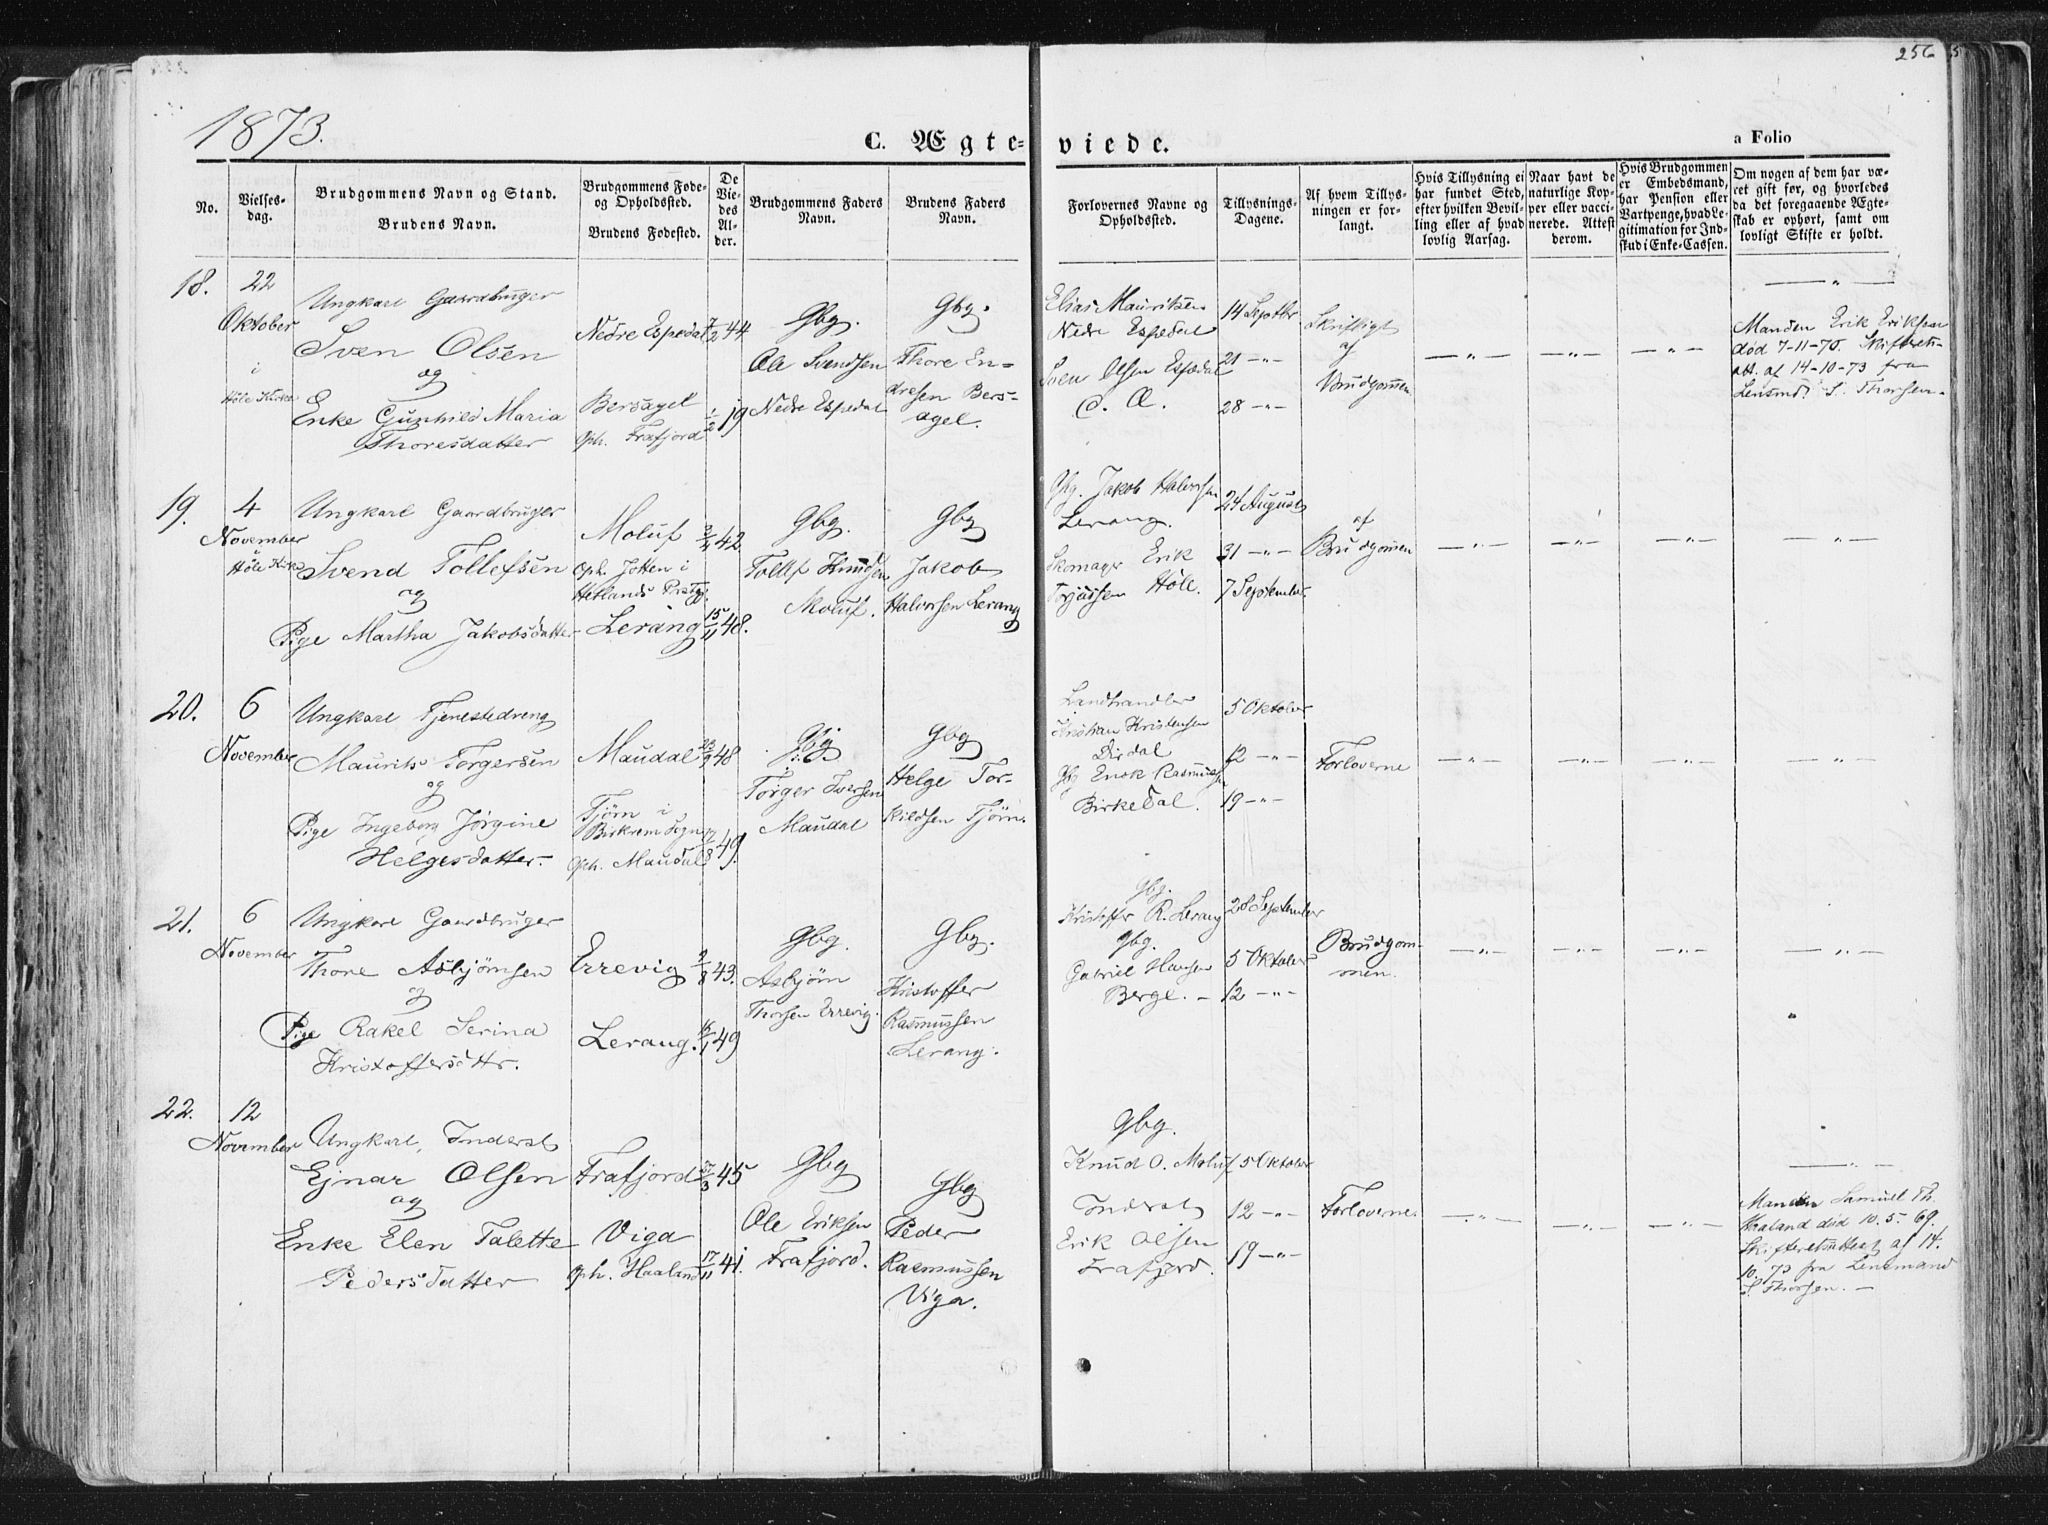 256
1873.
C. Ægte-viede.
a Folio
No.
Vielses-dag.
Brudgommens Navn og Stand.
Brudens Navn.
Brudgommens Føde- og Opholdssted.
Brudens Fødested.
De Viedes Alder.
Brudgommens Faders Navn.
Brudens Faders Navn.
Forlovernes Navne og Opholdssted.
Tillysnings-Dagene.
Af hvem Tillysningen er forlangt.
Hvis Tillysning ei har fundet Sted, efter hvilken Bevilling eller af hvad lovlig Aarsag.
Naar havt de naturlige Kopper eller vaccinerede. Attest derom.
Hvis Brudgommen er Embedsmand, har Pension eller Vartpenge, hvad Legitimation for Indskud i Enke-Cassen.
Om nogen af dem har været gift før, og hvorledes da det foregaaende Ægteskab er ophørt, samt om lovligt Skifte er holdt.
18.
22 Oktober i Høle Kirke
Ungkarl Gaardbruger
Sven Olsen
og
Enke Gunhild Maria
Thoresdatter
Nedre Espedal
Bersagel
Oph. Frafjord
7/2 44
1/2 19
Gbg.
Ole Svendsen
Nedre Espedal
Gbg.
Thore En-
dresen Bers-
agel.
Elias Mauritsen
Nedre Espedal
Sven Olsen Espedal
14 Septbr
21 -"-
28 -"-
Skriftligt
af
Brudgommen
-"-
-"-
-"-
-"-
Manden Erik Eriksen
død 7-11-70. Skifteretts-
att. af 14-10-73 fra
Lensmd. S. Thorsen.
19.
4
November
Høle Kirke
Ungkarl Gaardbruger
Svend Tollefsen
og
Pige Martha Jakobsdatter
Moluf
Oph. Jotten i
Hetlands Prstgj.
Lerang
42
15/11 48.
Gbg.
Tollef Knudsen
Moluf.
Gbg
Jakob
Halvorsen Lerang
Gbg. Jakob Halvorsen
Lerang.
Skomager Erik
Torjussen Høle.
24 August
31 -"-
7 September
af
Brudgommen
-"-
-"-
-"-
-"-
20.
6
November
Ungkarl Tjenestedreng
Maurits Torgersen
og
Pige Ingeborg Jørgine
Helgesdatter.
Maudal
Tjørn i
Birkrem Sogn
Oph. Maudal
23/9 48
17/8 49.
Gbg
Torger Iversen
Maudal
Gbg
Helge Tor-
kildsen Tjørn.
Landhandler
Kristian Kristensen
Dirdal
Gbg Enok Rasmussen
Birkedal.
5 Oktober
12 -"-
19 -"-
Forloverne
-"-
-"-
-"-
-"-
21.
6
November
Ungkarl Gaardbruger
Thore Asbjørnsen
og
Pige Rakel Serina
Kristoffersdttr.
Errevig
Lerang.
2/8 43.
16/1 49
Gbg.
Asbjørn
Thorsen Errevig.
Gbg.
Kristoffer
Rasmussen
Lerang.
Gbg.
Kristoffer R. Lerang
Gbg.
Gabriel Hansen
Berge.
28 September
5 Oktober
12 -"-
Brudgom-
men.
-"-
-"-
-"-
-"-
22.
12
November
Ungkarl, Inderst
Ejnar Olsen
og
Enke Elen Talette
Pedersdatter
Frafjord
Viga
Oph. Haaland
27/3 45
17/11 41.
Gbg
Ole Eriksen
Frafjord.
Gbg
Peder
Rasmussen
Viga.
Gbg.
Knud O. Moluf
Inderst
Erik Olsen
Frafjord.
5 Oktober
12 -"-
19 -"-
Forloverne
-"-
-"-
-"-
-"-
Manden Samuel Th.
Haaland død 10.5.69.
Skifteretsattest af 14.
10.73 fra Lensmand
S Thorsen. -